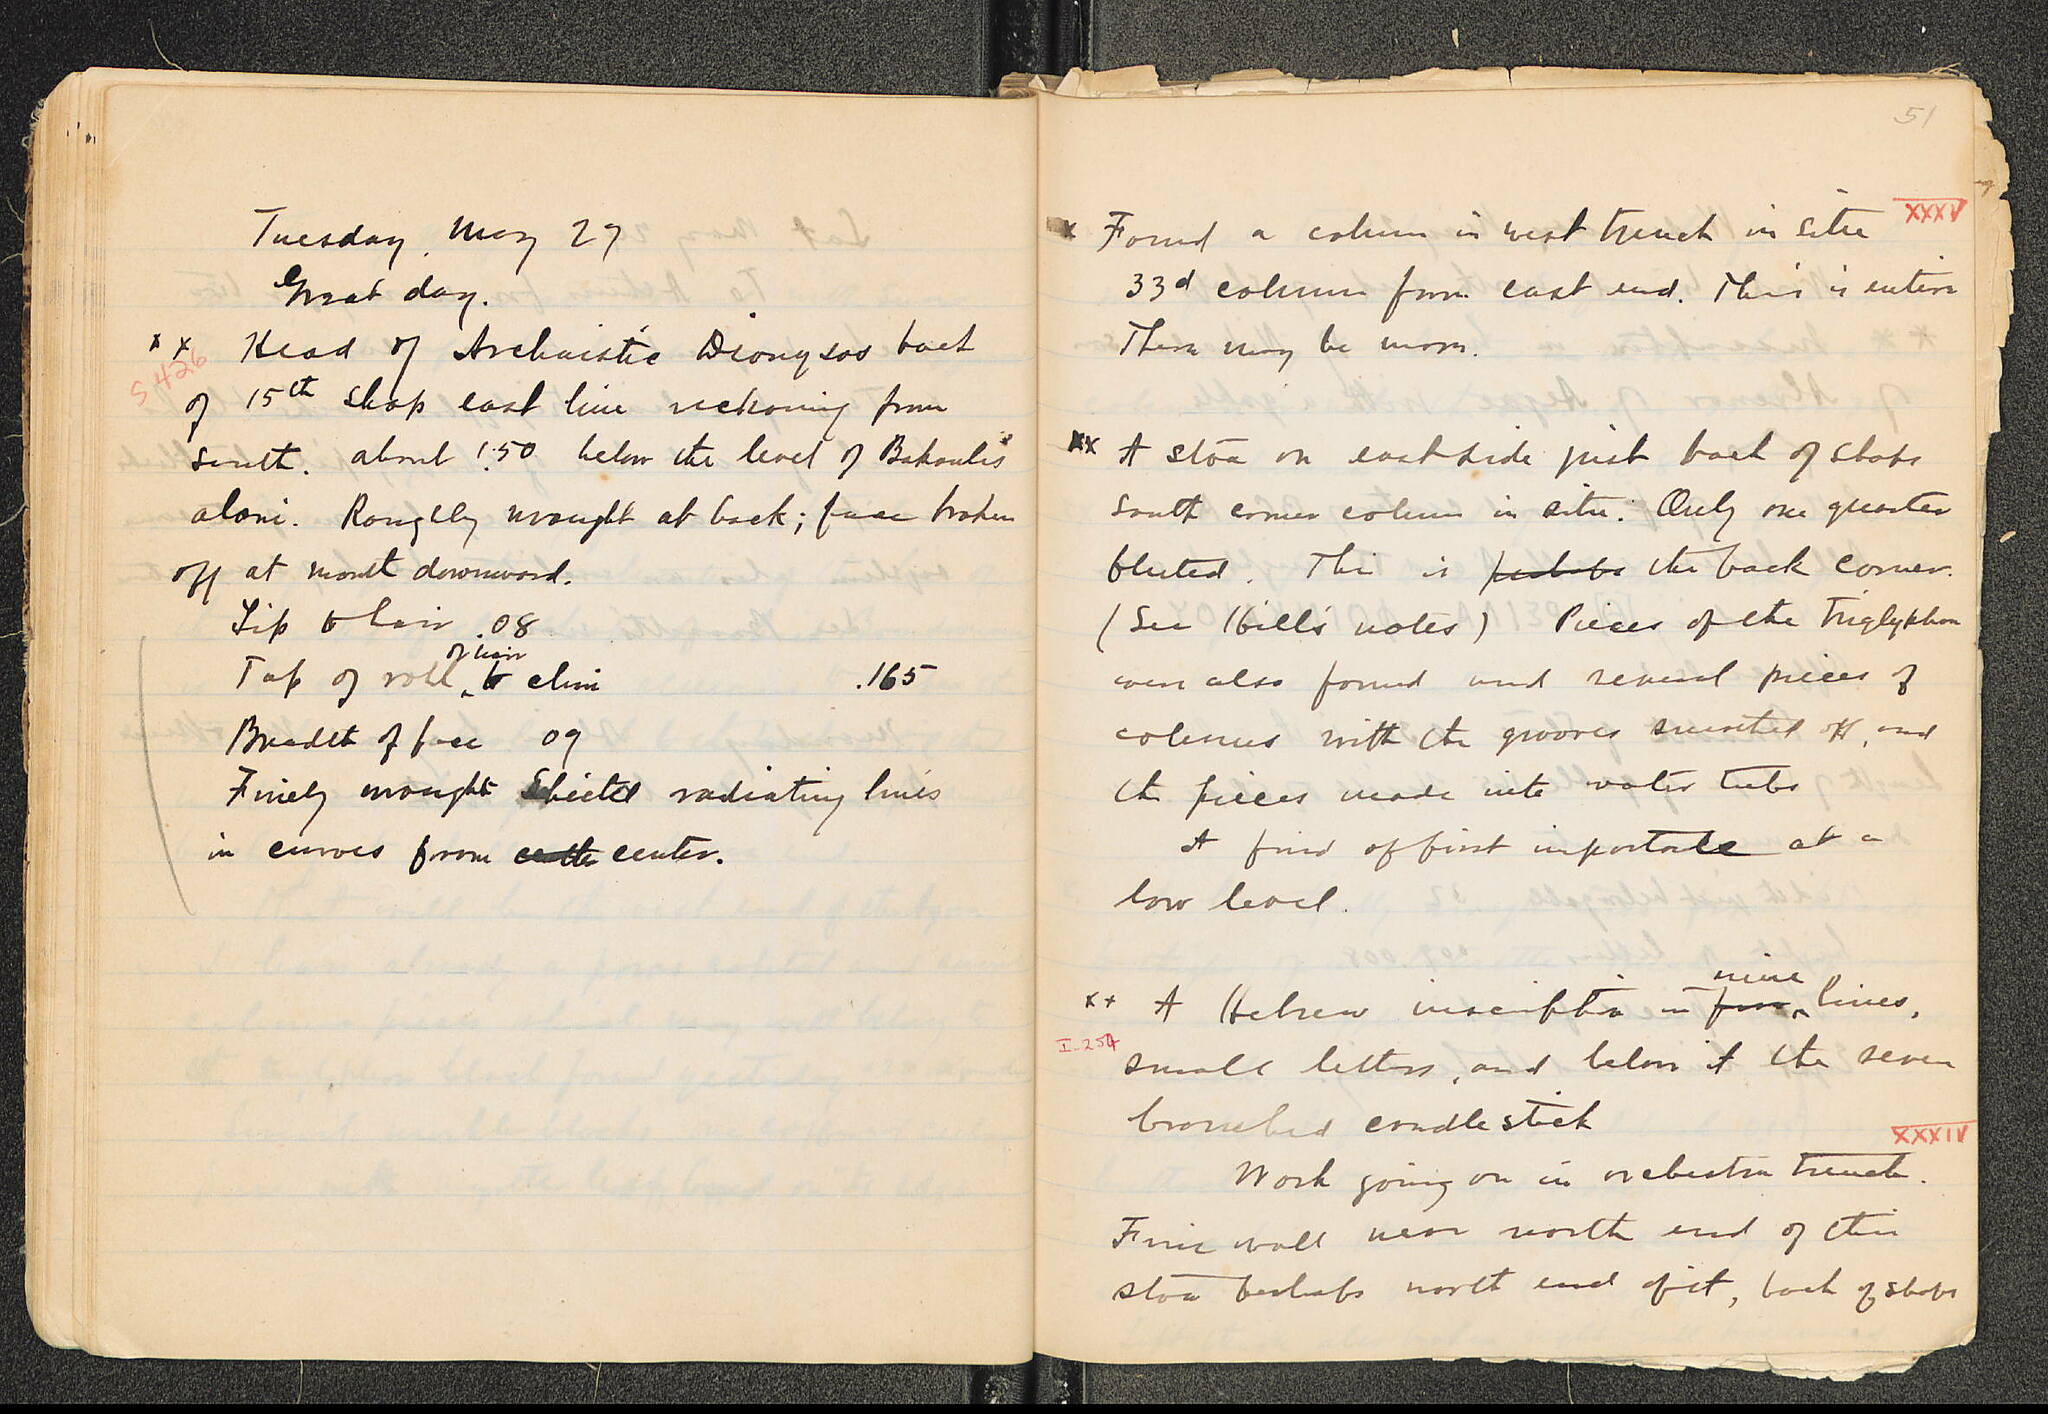 Tuesday, May 27
Great day.
x x Head of Archaistic Dionysos back
S 426
of 15th shop east line reckoning from
south. about 1.50 below the level of Bakoulis'
aloni. Roughly wrought at back; face broken
off at mouth downward.
Lip to hair .08
of hair
Top of roll ‸ to chin .165
Breadth of face 09
Finely wrought radiating lines
in curves from center.
51
XXXV
x Found a column in west trench in situ
33d column from east end. This is entire
There may be more.
xx A stoa on east side just back of shops
south corner column in situ. Only one quarter
fluted. This is perhaps the back corner.
(See Hill's notes) Pieces of the triglyphon
were also found and several pieces of
columns with the grooves smoothed off, and
the pieces made into water tubs
A find of first importance at a
low level.
nine
xx A Hebrew inscription in four ‸ lines,
I-254
small letters, and below it the seven
branched candlestick
XXXIV
Work going on in orchestra trench.
Fine wall near north end of this
stoa perhaps north end of it, back of shops